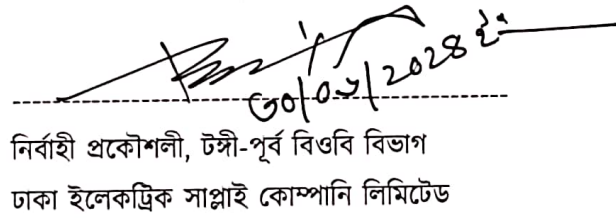 ৩০/০৬/২০২৪ ইং
নির্বাহী প্রকৌশলী, টঙ্গী-পূর্ব বিওবি বিভাগ
ঢাকা ইলেকট্রিক সাপ্লাই কোম্পানি লিমিটেড